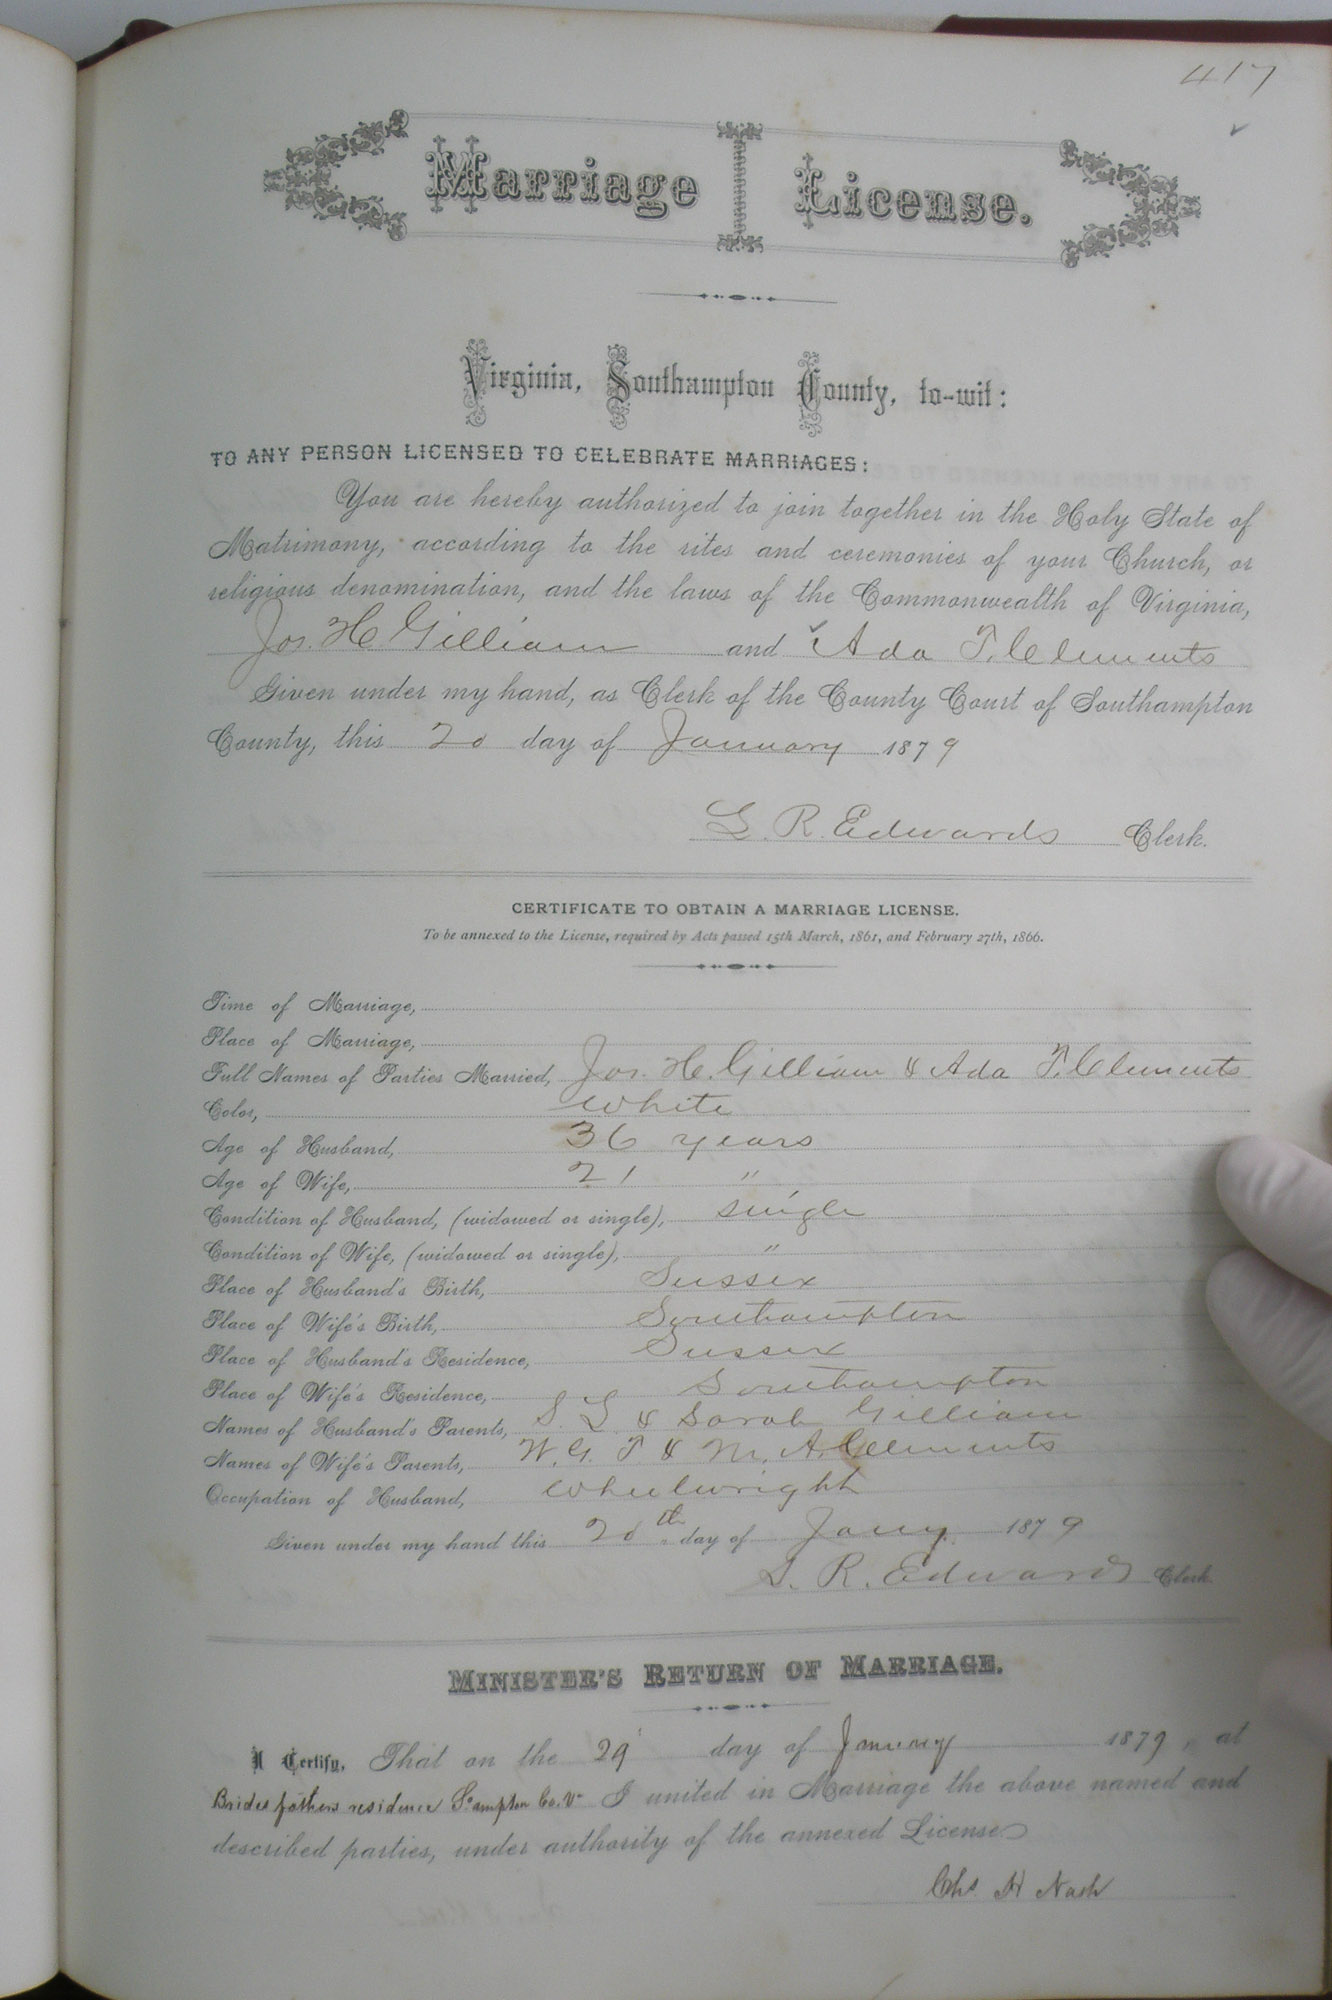 417
Marriage License.
Virginia, Southampton County, to-wit:
TO ANY PERSON LICENSED TO CELEBRATE MARRIAGES:
You are hereby authorized to join together in the Holy State of
Matrimony, according to the rites and ceremonies of your Church, or
religious denomination, and the laws of the Commonwealth of Virginia,
Jos. H. Gilliam and Ada T. Clements
Given under my hand, as Clerk of the County Court of Southampton
County, this 20 day of January 1879
L. R. Edwards Clerk.
CERTIFICATE TO OBTAIN A MARRIAGE LICENSE.
To be annexed to the License, required by Acts passed 15th March, 1861, and February 27th, 1866.
Time of Marriage,
Place of Marriage,
Full Names of Parties Married, Jos. H. Gilliam & Ada T. Clements
Color, White
Age of Husband, 36 years
Age of Wife, 21 "
Condition of Husband, (widowed or single), single
Condition of Wife, (widowed or single), "
Place of Husband's Birth, Sussex
Place of Wife's Birth, Southampton
Place of Husband's Residence, Sussex
Place of Wife's Residence, Southampton
Names of Husband's Parents, S. L & Sarah Gilliam
Names of Wife's Parents, W. G. T & M. A. Clements
Occupation of Husband, Wheelwright
Given under my hand this 20th day of Jany. 1879
L. R. Edwards Clerk.
MINISTER'S RETURN OF MARRIAGE.
I Certify, That on the 29 day of January 1879, at
Brides fathers residence S°ampton Co. Va I united in Marriage the above named and
described parties, under authority of the annexed License
Chs H Nash